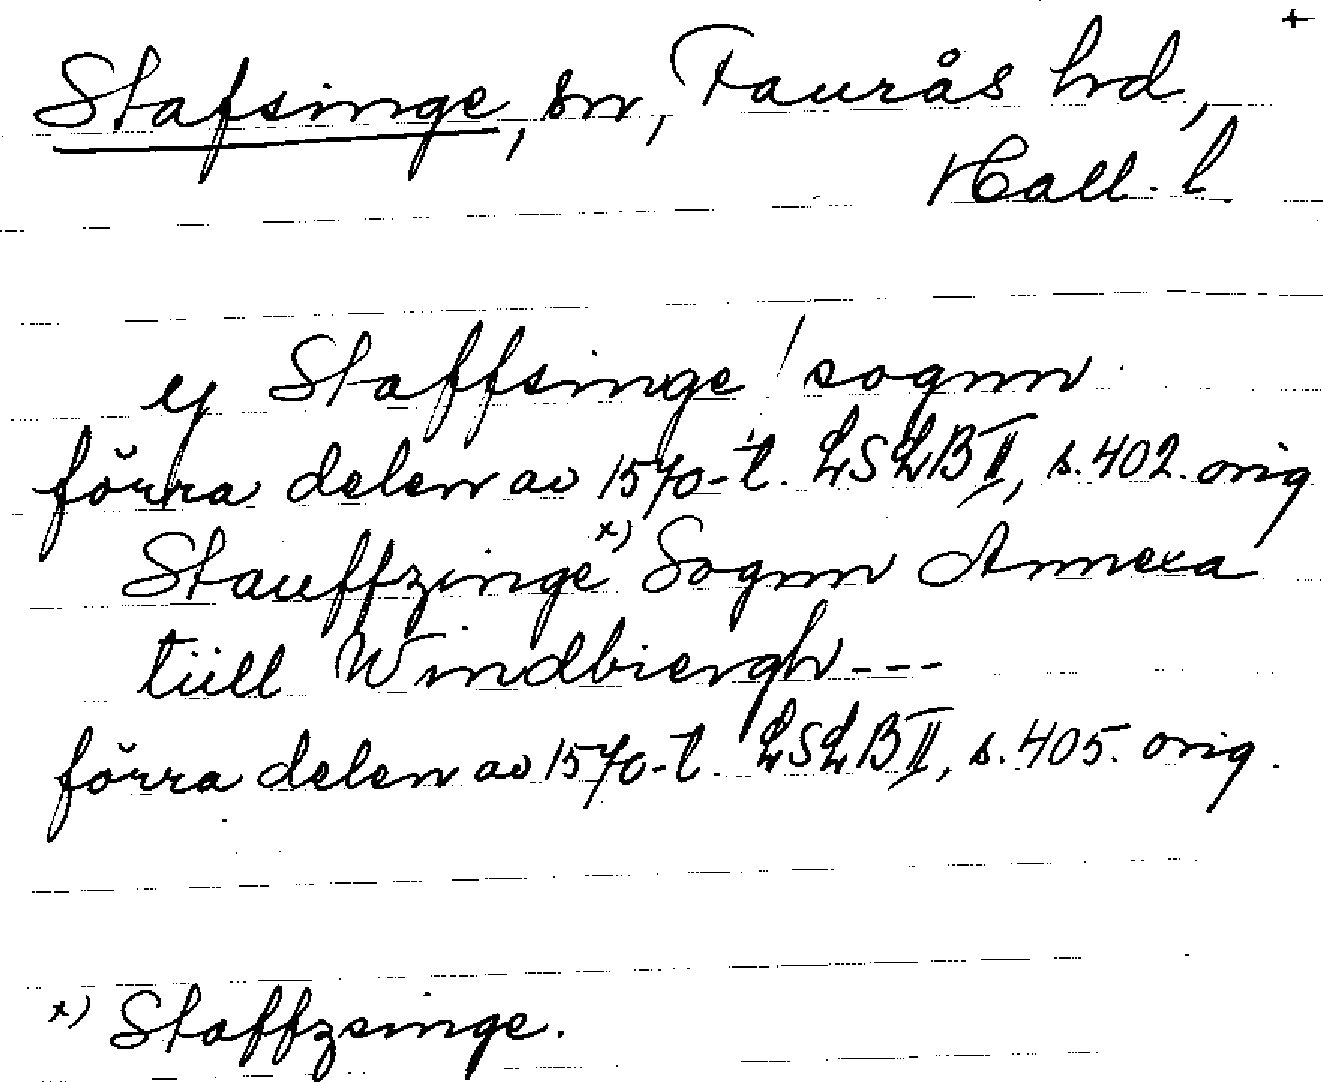 +
Stafsinge, sn, Faurås hd,
Hall. l.
ij Staffsinge / sognn
förra delen av 1570-t. LSLB II, s. 402. orig
Stauffzinge x) Sognn Annexa
tiill Windbiergh---
förra delen av 1570-t. LSLB II, s. 405. orig.
x) Staffzsinge.